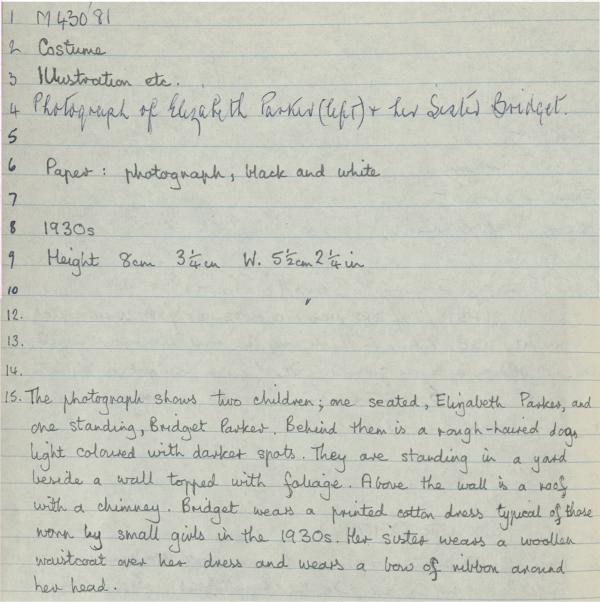 1 M430'81
2 Costume
3 Illustration etc.
4 Photograph of Elizabeth Parker (left) + her Sister Bridget.
5
6 Paper : photograph, black and white
7
8 1930s
9 Height 8cm 3 1/4 in W. 5 1/2 cm 2 1/4 in
10
12.
13.
14.
15. The photograph shows two children; one seated, Elizabeth Parker, and
one standing, Bridget Parker. Behind them is a rough-haired dog,
light coloured with darker spots. They are standing in a yard
beside a wall topped with foliage. Above the wall is a roof
with a chimney. Bridget wears a printed cotton dress typical of those
worn by small girls in the 1930s. Her sister wears a woollen
waistcoat over her dress and wears a bow of ribbon around
her head.